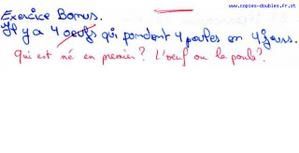 www.copies-doubles.fr.st
Exercice Bonus.
Il y a 4 oeufs qui pondent 4 poules en 4 jours.
Qui est né en premier? L'oeuf ou la poule?